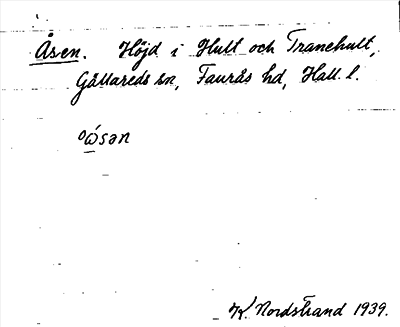 Åsen. Höjd i Hult och Tranehult,
Gällareds sn, Faurås hd, Hall. l.
Nordstrand 1939.